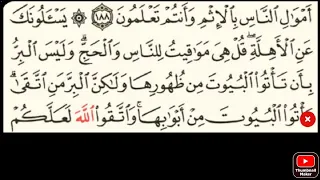 أَمْوَٰلِ ٱلنَّاسِ بِٱلْإِثْمِ وَأَنتُمْ تَعْلَمُونَ ١٨٨ ۞ يَسْـَٔلُونَكَ
عَنِ ٱلْأَهِلَّةِ ۖ قُلْ هِىَ مَوَٰقِيتُ لِلنَّاسِ وَٱلْحَجِّ ۗ وَلَيْسَ ٱلْبِرُّ
بِأَن تَأْتُوا۟ ٱلْبُيُوتَ مِن ظُهُورِهَا وَلَـٰكِنَّ ٱلْبِرَّ مَنِ ٱتَّقَىٰ ۗ
وَأْتُوا۟ ٱلْبُيُوتَ مِنْ أَبْوَٰبِهَا ۚ وَٱتَّقُوا۟ ٱللَّهَ لَعَلَّكُمْ
Thumbnail
Maker